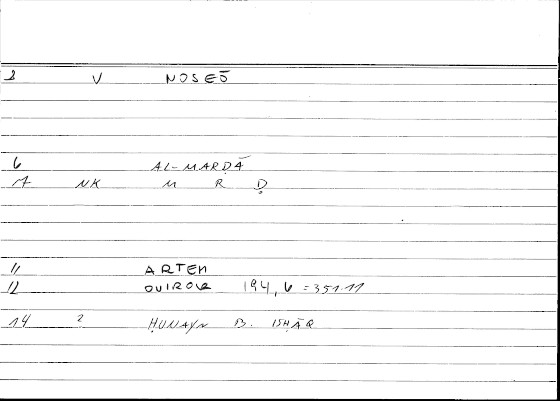 8 V NOSEŌ
6 AL-MARḌĀ
17 NK M R Ḍ
11 ARTEM
12 OVIROVR 194, 6 = 351.11
14 2 ḤUNAYN B. ISḤĀQ